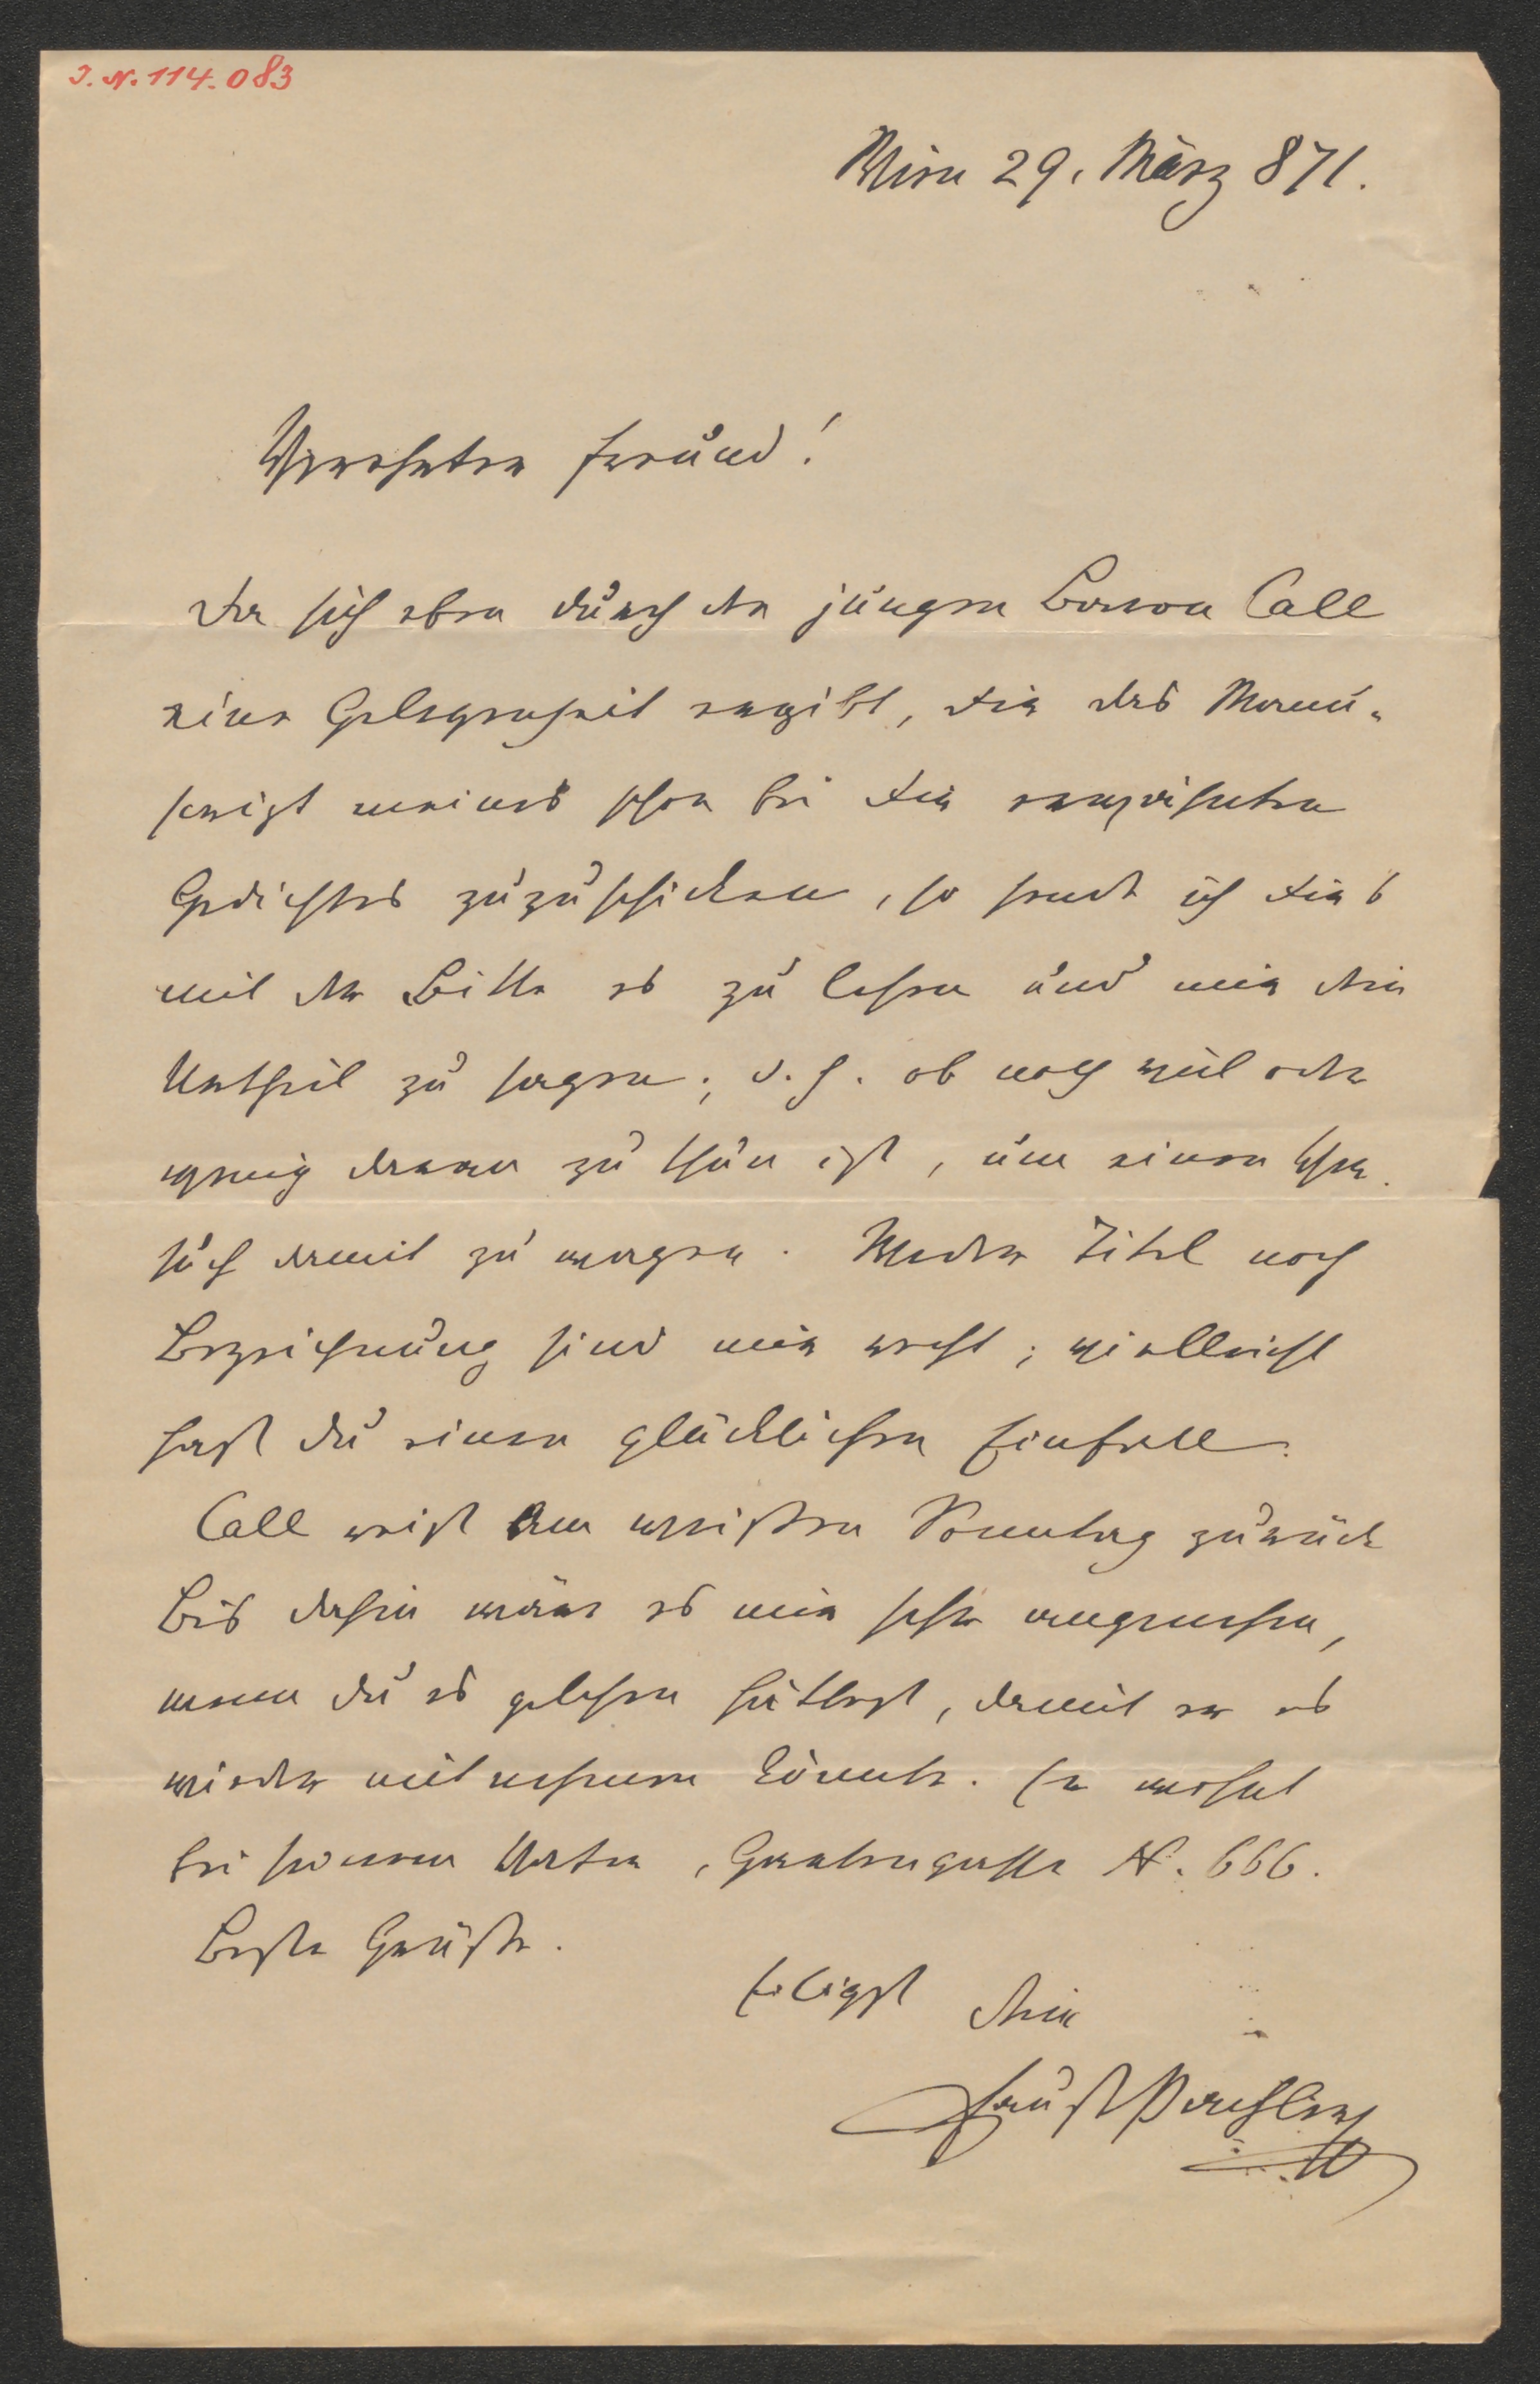 I. N. 114.083
Wien 29. März 871.
Verehrter Freund!
Da sich eben durch den jungen Baron Call
eine Gelegenheit ergibt, Dir das Manu-
script meines schon bei Dir erwähnten
Gedichtes zuzuschicken, so sende ich Dir's
mit der Bitte es zu lesen und mir Dein
Urtheil zu sagen; d. h. ob noch viel oder
wenig daran zu thun ist, um einen Ver-
such damit zu wagen. Weder Titel noch
Bezeichnung sind mir recht; vielleicht
hast du einen glücklichen Einfall.
Call reist am weißen Sonntag zurück
Bis dahin wäre es mir sehr angenehm,
wenn du es gelesen hättest, damit er es
wieder mitnehmen könnte. Er wohnt
bei seinem Vater, Grabengasse N. 666.
Beste Grüße.
Eiligst Dein
Faust Pachler